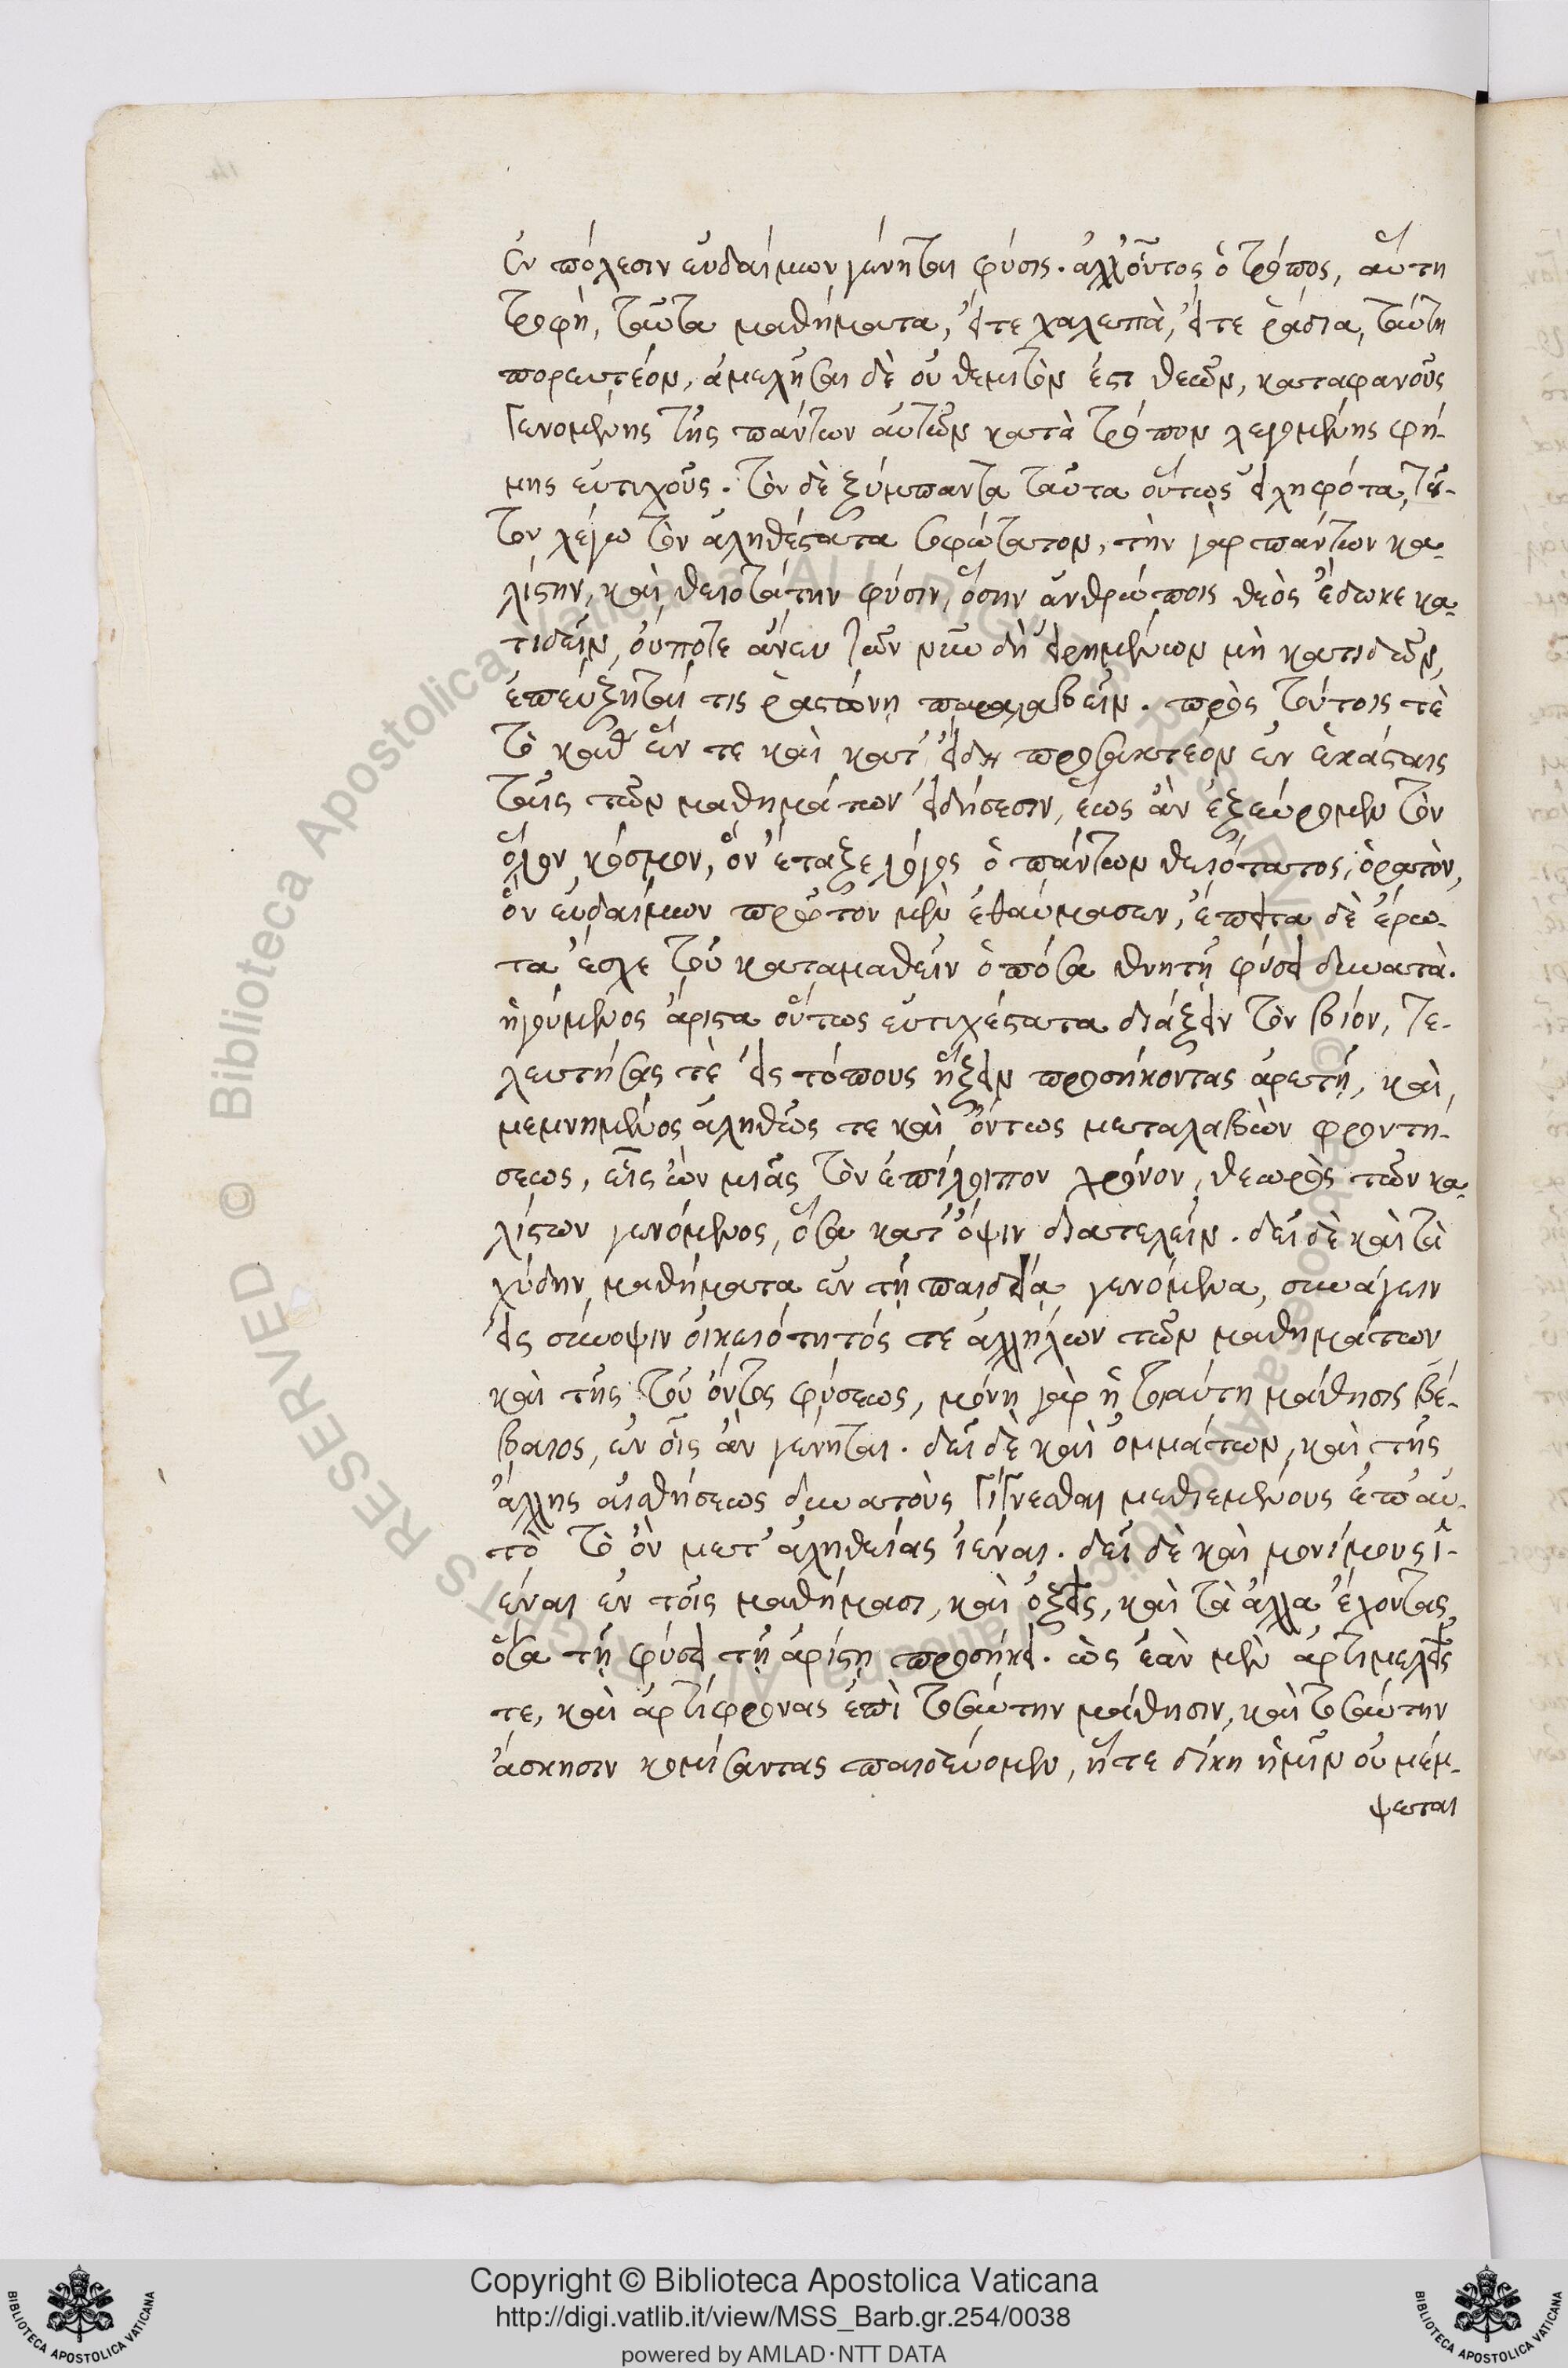 ἐν πόλεσιν εὐδαίμων γένηται φύσις. ἀλλ᾽ οὗτος ὁ τρόπος, αὕτη
τροφὴ, ταῦτα μαθήματα, εἴτε χαλεπὰ, εἴτε ῥάδια, ταύτῃ
πορευτέον, ἀμελῆσαι δὲ οὐ θεμιτὸν ἐστι θεῶν, καταφανοῦς
γενομένης τῆς πάντων αὐτῶν κατὰ τρόπον λεγομένης φή-
μης εὐτυχοῦς. τὸν δὲ ξύμπαντα ταῦτα οὕτως εἰληφότα, τοῦ-
τον λέγω τὸν ἀληθέστατα σοφώτατον, τὴν γὰρ πάντων κα-
λίστην, καὶ θειοτάτην φύσιν, ὅσην ἀνθρώποις θεὸς ἔδωκε κα-
τιδεῖν, οὔποτε ἄνευ τῶν νῦν δὴ εἰρημένων μὴ κατιδὼν,
ἐπεύξηταί τις ῥαστώνῃ παραλαβεῖν. πρὸς τούτοις τὲ
τὸ καθ᾽ ἕν τε καὶ κατ᾽ εἴδη προσακτέον ἐν ἑκάσταις
ταῖς τῶν μαθημάτων εἰδήσεσιν, ἕως ἂν ἐξεύρομεν τὸν
ὅλον κόσμον, ὃν ἔταξε λόγος ὁ πάντων θειότατος, ὁρατὸν,
ὃν εὐδαίμων πρῶτον μὲν ἐθαύμασεν, ἔπειτα δὲ ἔρω-
τα ἔσχε τοῦ καταμαθεῖν ὁπόσα θνητῇ φύσει δυνατὰ.
ἡγούμενος ἄριστα οὕτως εὐτυχέστατα διάξειν τὸν βίον, τε-
λευτήσας τὲ εἰς τόπους ἥξειν προσήκοντας ἀρετῇ, καὶ
μεμνημένος ἀληθῶς τε καὶ ὄντως μεταλαβὼν φροντή-
σεως, εἷς ὢν μιᾶς τὸν ἐπίλοιπον χρόνον, θεωρὸς τῶν κα-
λίστων γενόμενος, ὅσα κατ᾽ ὄψιν διατελεῖν. δεῖ δὲ καὶ τὰ
χύδην μαθήματα ἐν τῇ παιδείᾳ γενόμενα, συνάγειν
εἰς σύνοψιν οἰκειότητός τε ἀλλήλων τῶν μαθημάτων
καὶ τῆς τοῦ ὄντος φύσεως, μόνη γὰρ ἡ τοιαύτη μάθησις βέ-
βαιος, ἐν οἷς ἂν γένηται. δεῖ δὲ καὶ ὀμμάτων, καὶ τῆς
ἄλλης αἰσθήσεως δυνατοὺς γίγνεσθαι μεθιεμένους ἐπ᾽ αὐ-
τὸ τὸ ὂν μετ᾽ ἀληθείας ἰέναι. δεῖ δὲ καὶ μονίμους ἰ-
έναι ἐν τοῖς μαθήμασι, καὶ ὀξεῖς, καὶ τὰ ἄλλα ἔχοντας
ὅσα τῇ φύσει τῇ ἀρίστῃ προσήκει. ὡς ἐὰν μὲν ἀρτιμελεῖς
τε, καὶ ἀρτίφρονας ἐπὶ τοσαύτην μάθησιν, καὶ τοσαύτην
ἄσκησιν κομίσαντας παιδεύομεν, ἥτε δίκη ἡμῖν οὐ μέμ-
ψεται
© Biblioteca Apostolica Vaticana, ALL RIGHTS RESERVED
Copyright © Biblioteca Apostolica Vaticana
http://digi.vatlib.it/view/MSS_Barb.gr.254/0038
powered by AMLAD·NTT DATA
BIBLIOTECA APOSTOLICA VATICANA
BIBLIOTECA APOSTOLICA VATICANA